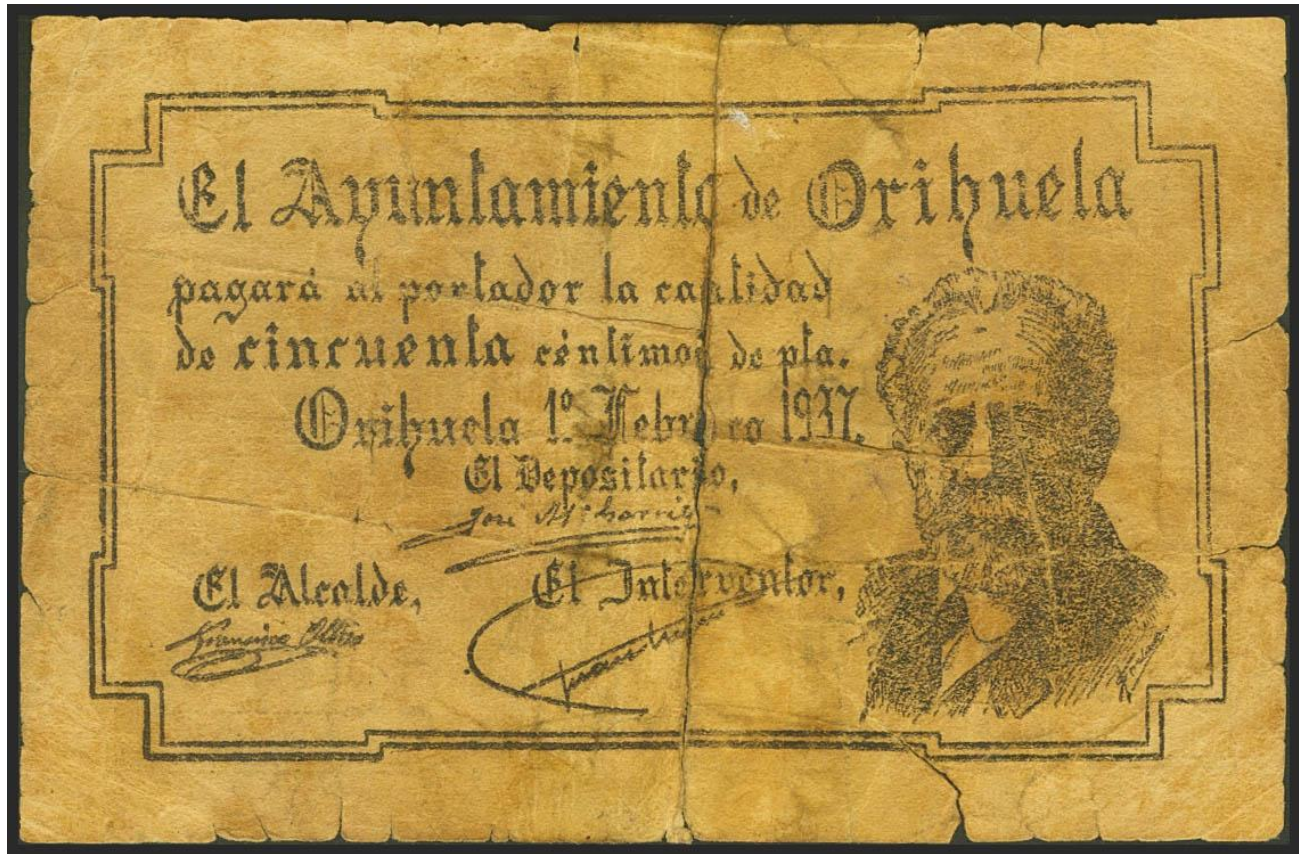 El Ayuntamiento de Orihuela
pagará al portador la cantidad
de cincuenta céntimos de pta.
Orihuela 1º Febrero 1937.
El Depositario,
José Mª
El Alcalde,
El Interventor,
Francisco